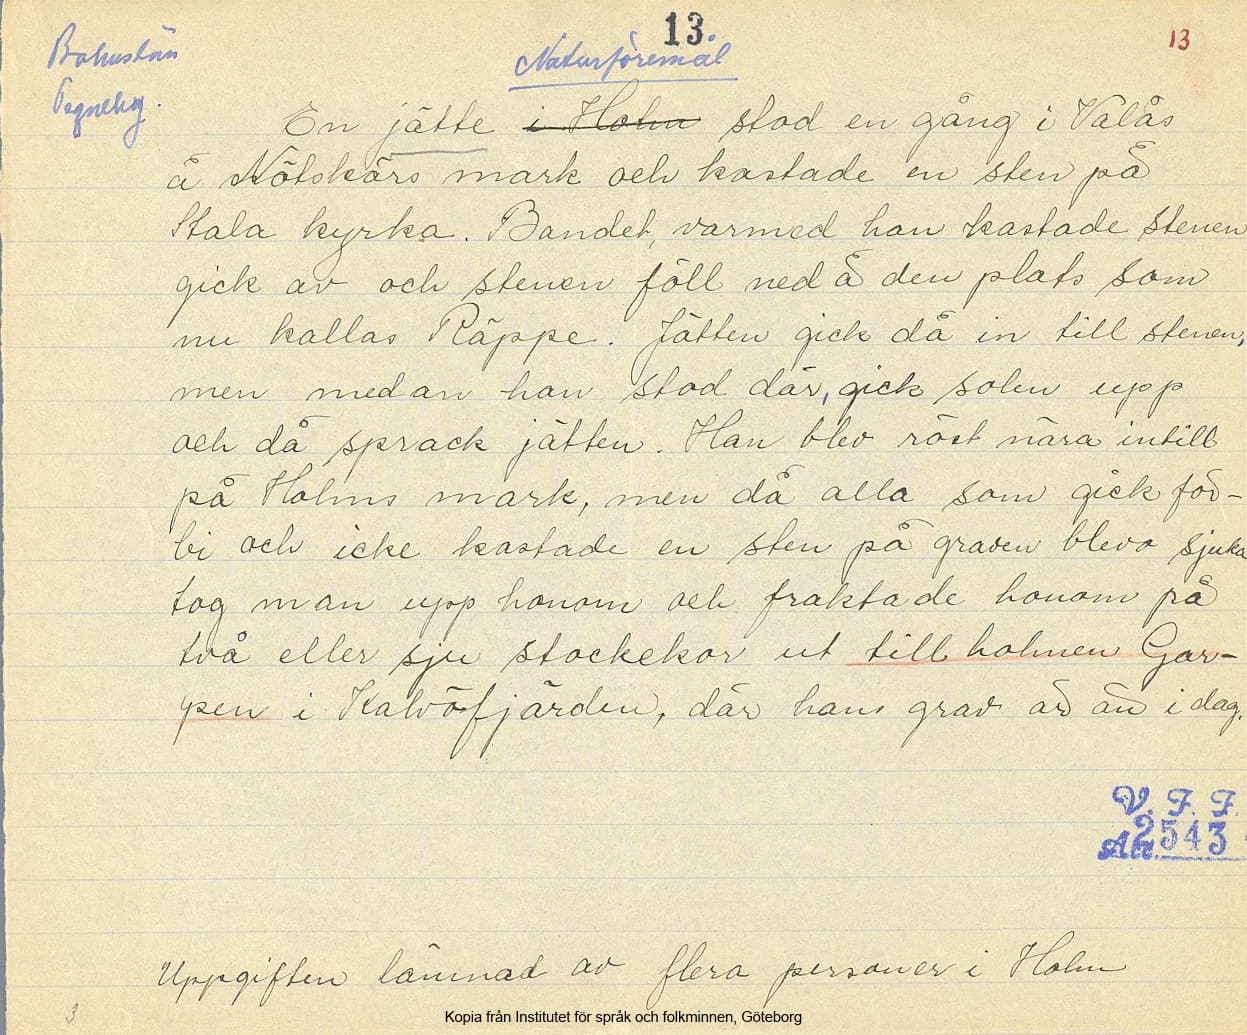 13.
13
Bohuslän
Naturföremål
Tegneby.
En jätte i Holm stod en gång i Valås
å Nötskärs mark och kastade en sten på
Stala kyrka. Bandet, varmed han kastade stenen
gick av och stenen föll ned å den plats som
nu kallas Räppe. Jätten gick då in till stenen,
men medan han stod där, gick solen upp
och då sprack jätten. Han blev röst nära intill
på Holms mark, men då alla som gick för-
bi och icke kastade en sten på graven blevo sjuka
tog man upp honom och fraktade honom på
två eller sju stockekor ut till holmen Gar-
pen i Kalvöfjärden, där hans grav är än i dag.
V. F. F.
Acc. 2543
Uppgiften lämnad av flera personer i Holm
3
Kopia från Institutet för språk och folkminnen, Göteborg